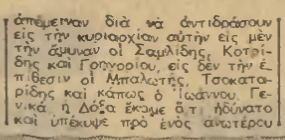 ἀπέμειναν διὰ νὰ ἀντιδράσουν
εἰς τὴν κυριαρχίαν αὐτὴν εἰς μὲν
τὴν ἄμυναν οἱ Σαμλίδης, Κοτρί-
δης καὶ Γρηγορίου, εἰς δὲ τὴν ἐ-
πίθεσιν οἱ Μπαλωτής, Τσοκατα-
ρίδης καὶ κάπως ὁ Ἰωάννου. Γε-
νικὰ ἡ Δόξα ἔκαμε ὅ,τι ἠδύνατο
καὶ ὑπέκυψε πρὸ ἑνὸς ἀνωτέρου